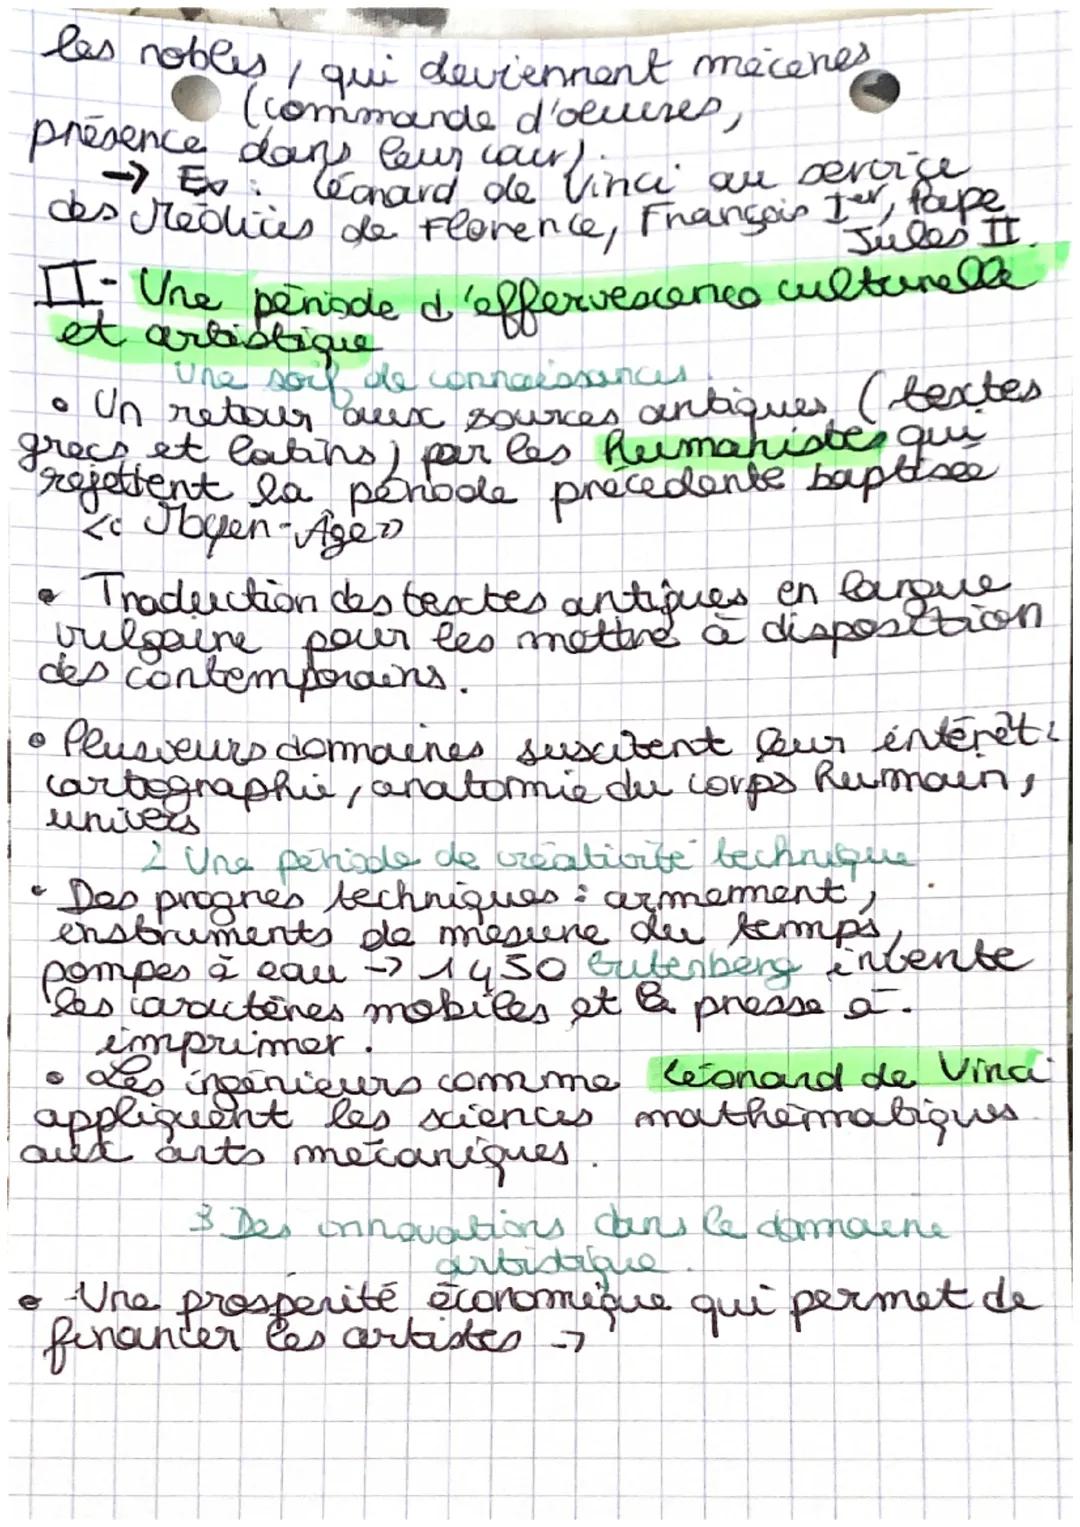 les nobles, qui deviennent mécènes
(commande d'oeuvres,
présence dans leur cour).
→ Ex : Léonard de Vinci au service
des Médicis de Florence, François Ier, Pape
Jules II.
II- Une période d'effervescence culturelle
et artistique
Une soif de connaissances.
• Un retour aux sources antiques (textes
grecs et latins) par les humanistes qui
rejettent la période précédente baptisée
<< Moyen-Âge >>
• Traduction des textes antiques en langue
vulgaire pour les mettre à disposition
des contemporains.
• Plusieurs domaines suscitent leur intérêt :
cartographie, anatomie du corps humain,
univers
2 Une période de créativité technique
• Des progrès techniques : armement,
instruments de mesure du temps,
pompes à eau → 1450 Gutenberg invente
les caractères mobiles et la presse à
imprimer.
• Les ingénieurs comme Léonard de Vinci
appliquent les sciences mathématiques
aux arts mécaniques.
3 Des innovations dans le domaine
artistique.
• Une prospérité économique qui permet de
financer les artistes →